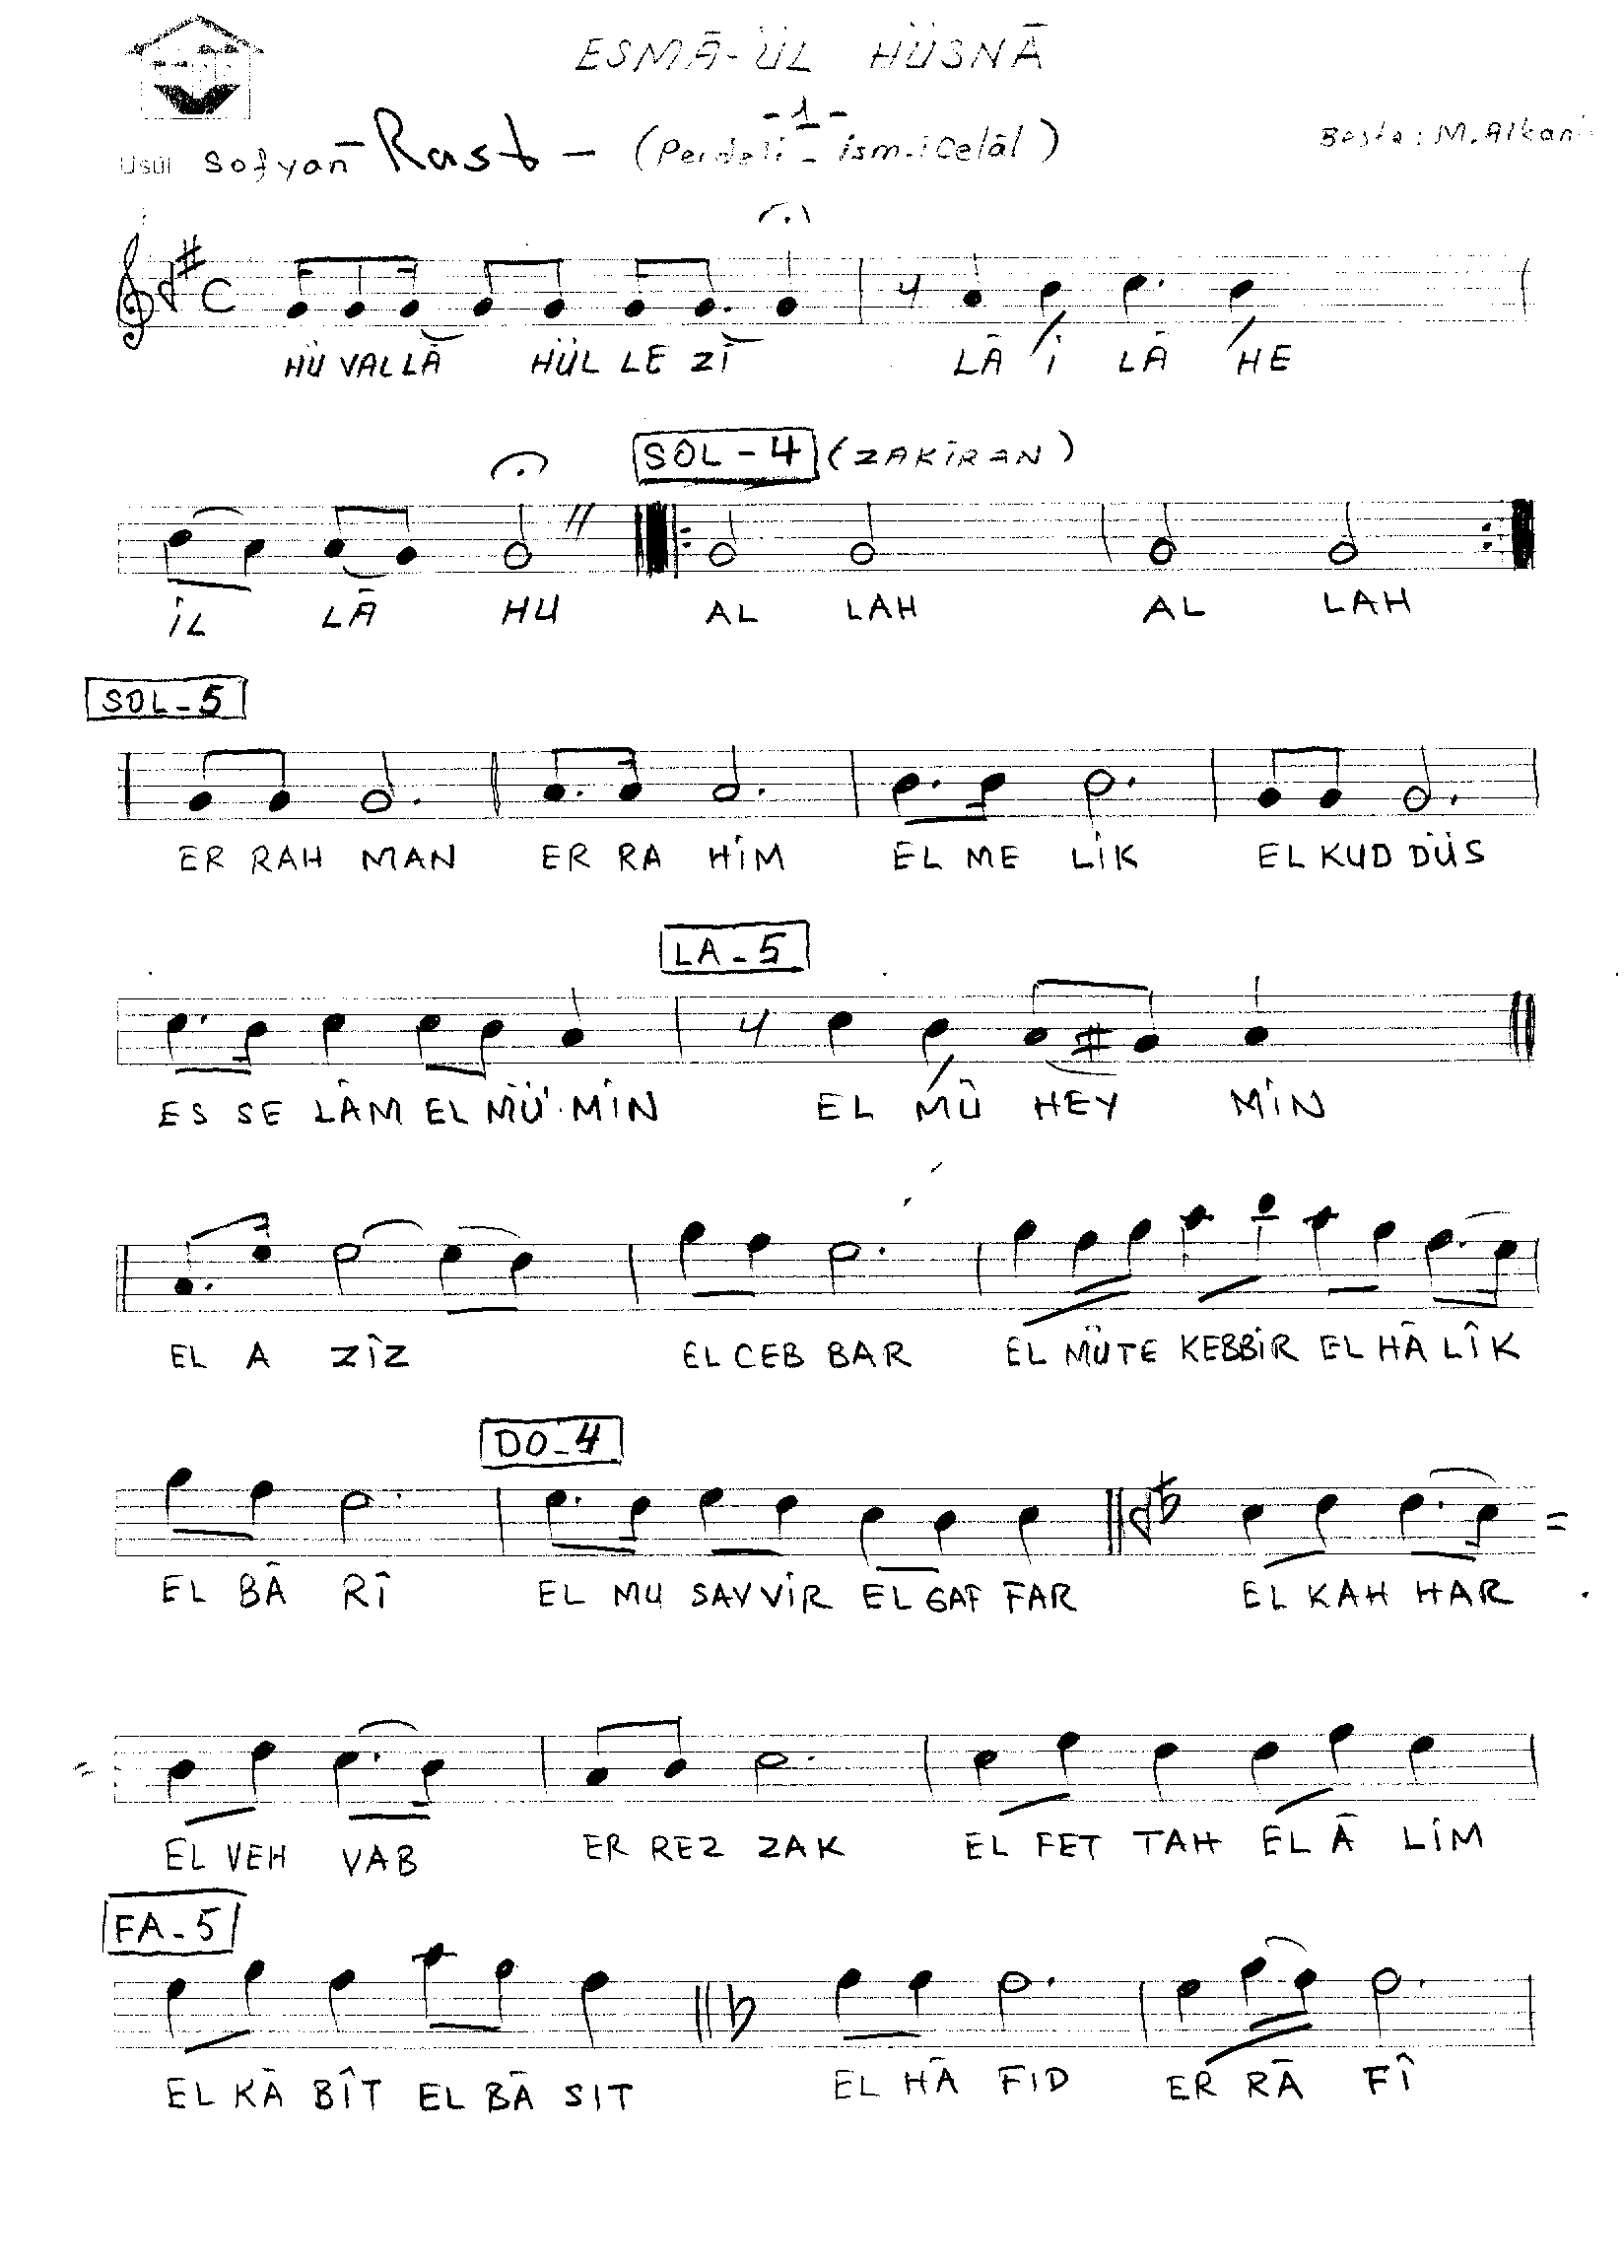 ESMĀ-ÜL HÜSNĀ
-1-
Usül Sofyan - Rast - (Perdeli - ism-i Celâl)
Beste: M. Alkan
HÜ VAL LĀ HÜL LE ZÎ LĀ İ LĀ HE
SOL - 4 (ZAKİRAN)
İL LĀ HU AL LAH AL LAH
SOL - 5
ER RAH MAN ER RA HİM EL ME LİK EL KUD DÜS
LA - 5
ES SE LÂM EL MÜ' MİN EL MÜ HEY MİN
EL A ZÎZ EL CEB BAR EL MÜTE KEBBİR EL HĀ LÎK
DO - 4
EL BĀ RÎ EL MU SAVVİR EL GAF FAR EL KAH HAR =
= EL VEH VAB ER REZ ZAK EL FET TAH EL Ā LİM
FA - 5
EL KĀ BÎT EL BĀ SIT EL HĀ FID ER RĀ FÎ